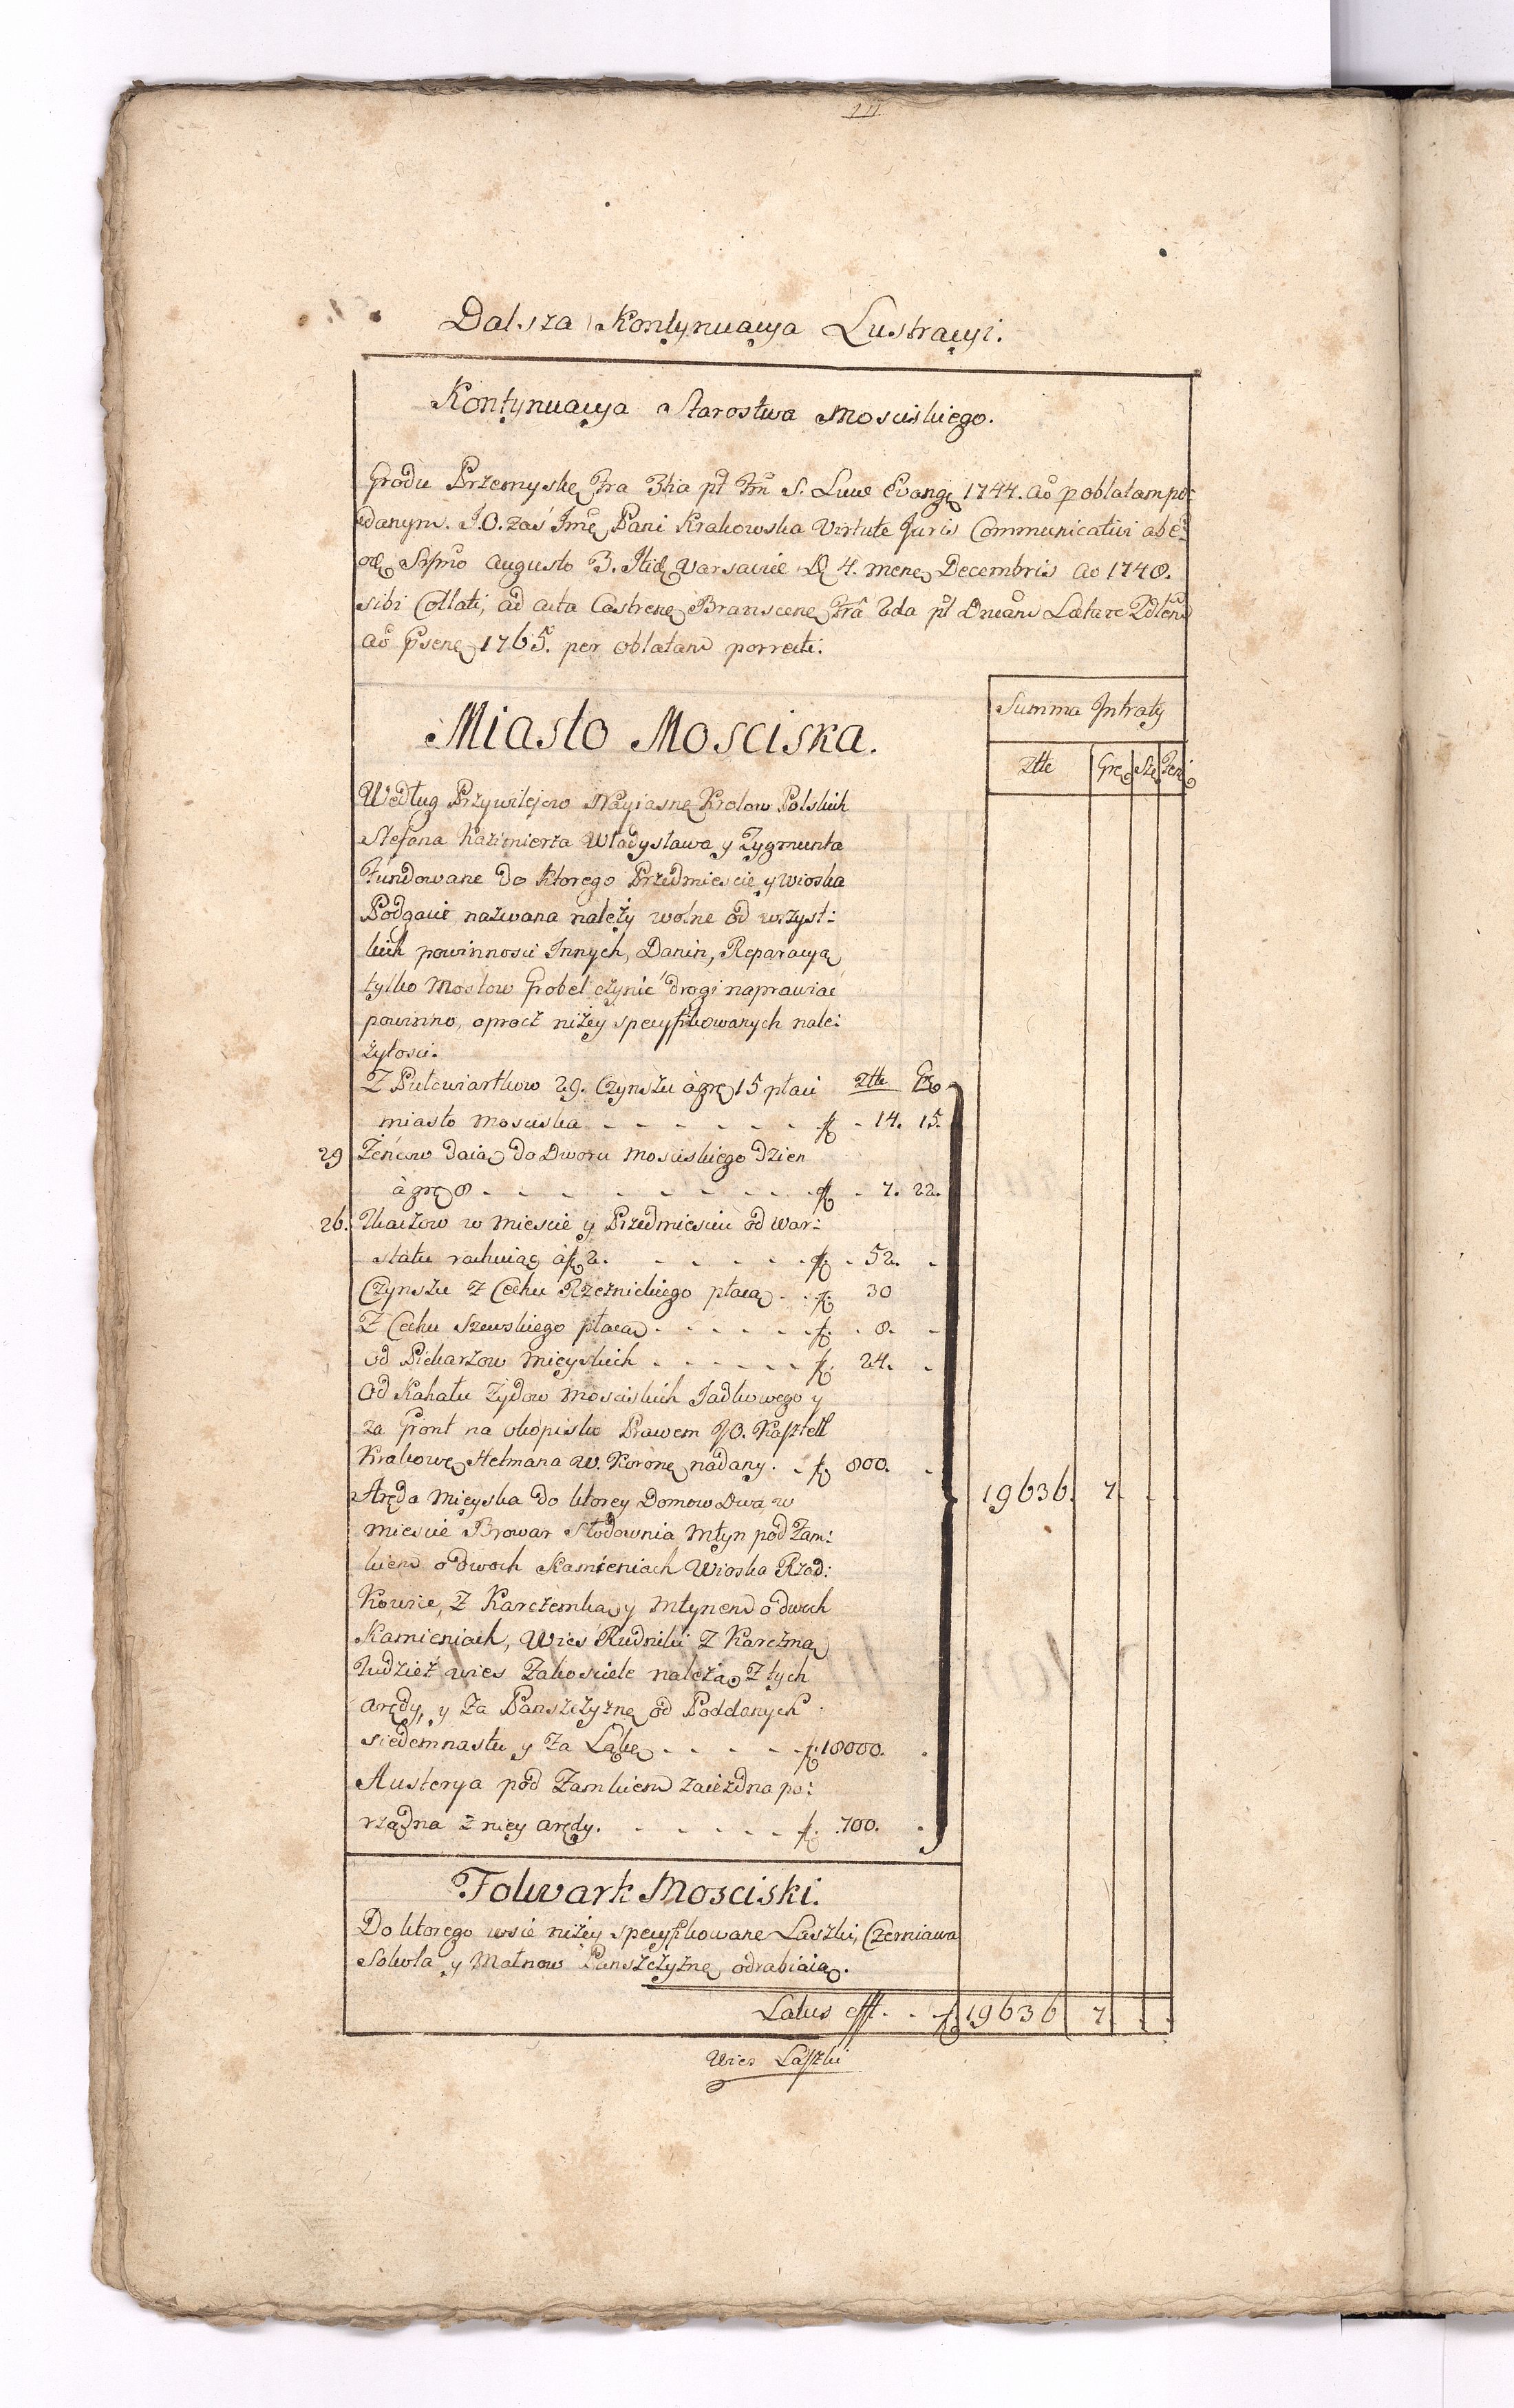 Dalsza Kontynuacya Lustracyi.
Kontynuacya Starostwa Mosciskiego.
Grodu Przemyskę Fra 3tia pt Fm S. Lucæ Evangę 1744. aõ p oblatam po:
danym. J.O. zaś Jmę Pani Krakowska Virtute Juris Communicativi ab e:
odę Srpmo Augusto 3. Itidę Varsaviæ Dę 4. mensę Decembris Ao 1748.
sibi Collati, ad acta Castrenę Branscenę Fra 2da pt Dncam Lætare
aõ Psenę 1765. per oblatam porrecti.
Summa Intraty
Miasto Mosciska.
Ztte Grę Szę Fen
Według Przywilejow Nayiasnę Krolow Polskich
Stefana Kazimierza Władysława y Zygmunta
Fundowane do ktorego Przedmiescie y wioska
Podgacie nazwana należy wolne od wszyst:
kich powinnosci Innych, Danin, Reparacyą
tylko Mostow Grobel czynić drogi naprawiac
powinno, oprocz niżey specyfikowanych nale:
żytosci.
Z Pułcwiartkow 29. Czynszu à grę 15 płaci Ztte Gę
miasto Mosciska - - - - - - - f - 14. 15.
29 Żeńcow daią do Dworu Mosciskiego dzien
à grę 8 - - - - - - - - - f - 7. 22.
26. Tkaczow w Miescie y Przedmiesciu od war:
statu rachuiąc à f 2. - - - - - f - 52. -
Czynszu z Cechu Rzeznickiego płacą - - f. 30
Z Cechu Szewskiego płacą - - - - - f. - 8. -
od Piekarzow Mieyskich - - - - - - f. 24. -
Od Kahału Żydow Mosciskich Jadkowego y
za Gront na okopisko Prawem JO. Kasztell
Krakowę Hetmana W. Koronę nadany. - f 800. -
19636. 7. - -
Aręda Mieyska do ktorey Domow Dwa, w
miescie Browar Słodownia Młyn pod Zam:
kiem o dwoch Kamieniach Wioska Rzad:
kowice, z Karczemką y Młynem o dwoch
Kamieniach, Wies Rudniki z Karczmą
tudzież wies Zakosciele należą z tych
arędy, y za Panszczyznę od Poddanych
siedemnastu y za Łąkę - - - - - f. 18000. -
Austerya pod Zamkiem zaiezdna po:
rządna z niey arędy. - - - - - - f. 700. -
Folwark Mosciski.
Do ktorego wsie niżey specyfikowane Laszki, Czerniawa
Sokola y Małnow Panszczyznę odrabiaią.
Latus efft. - - f 19636 7 - -
Wies Laszki